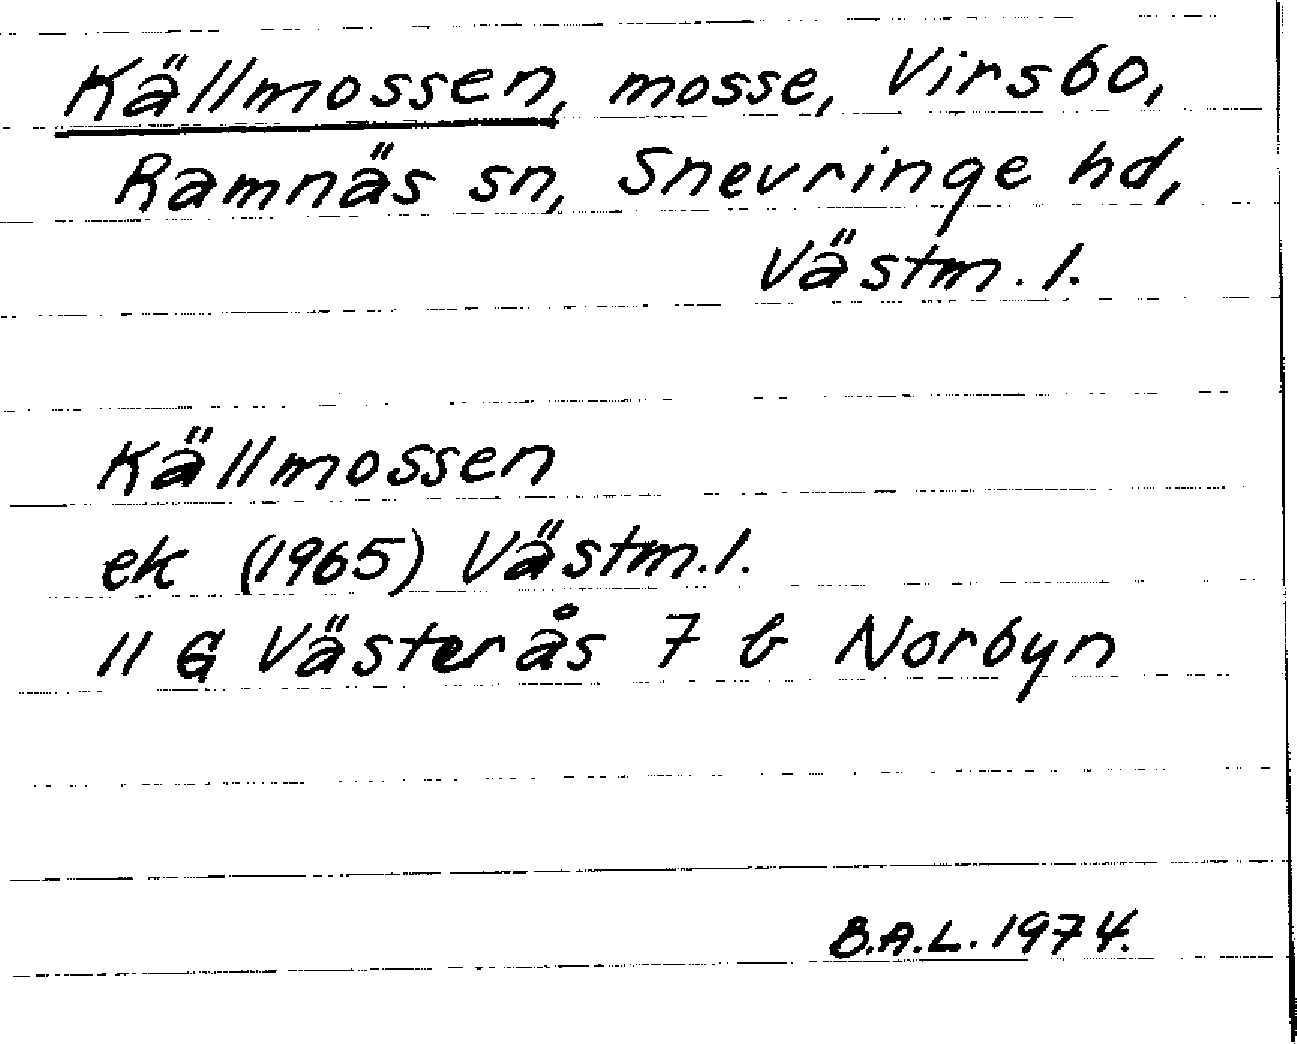 Källmossen, mosse, Virsbo,
Ramnäs sn, Snevringe hd,
Västm. l.
Källmossen
ek (1965) Västm. l.
11 G Västerås 7 b Norbyn
B.A.L. 1974.